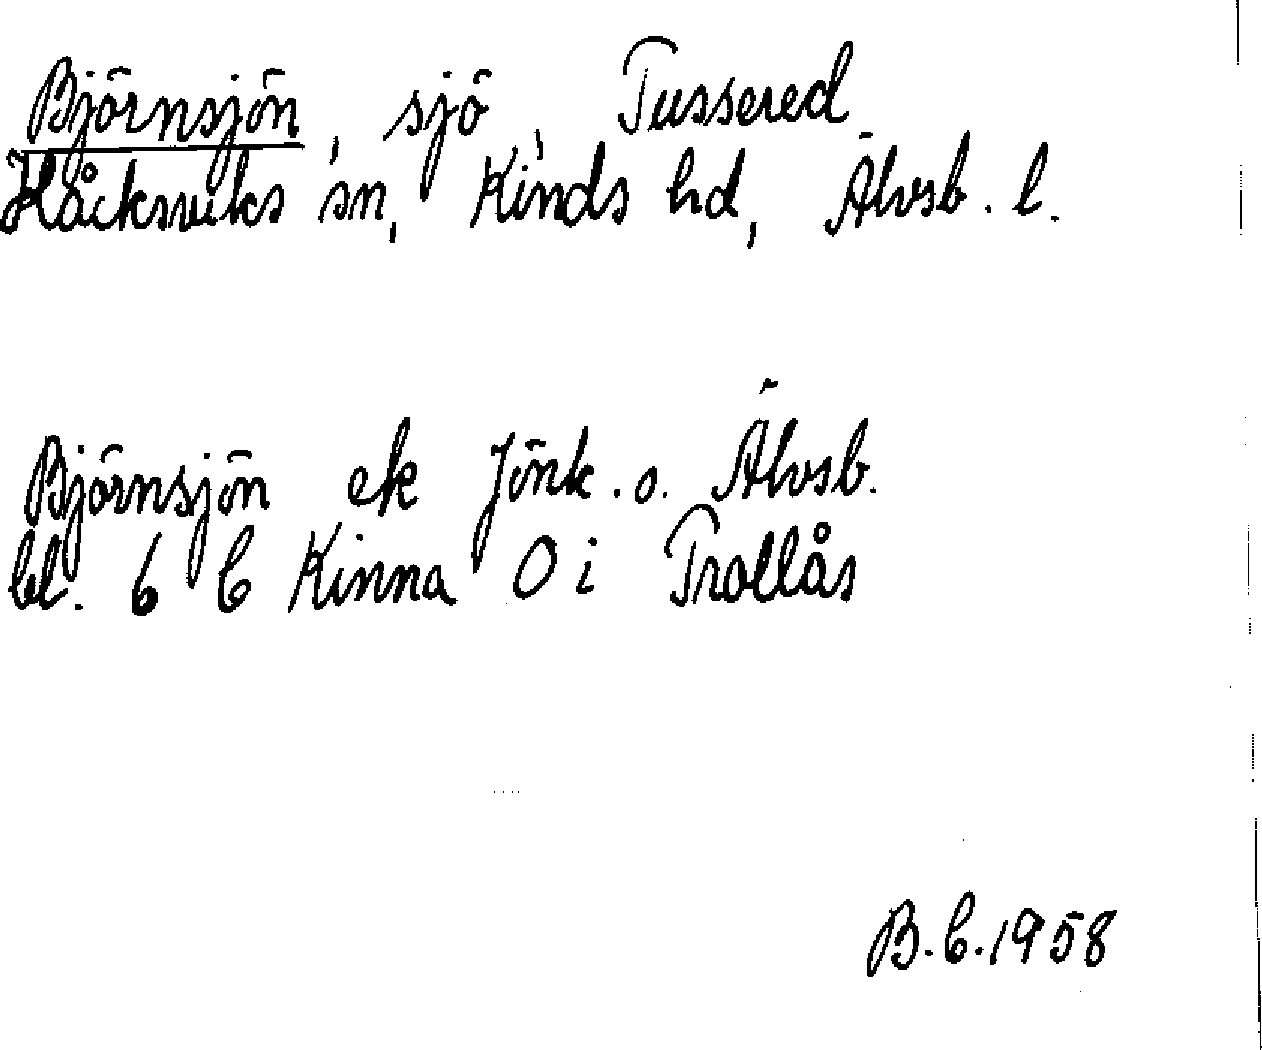 Björnsjön, sjö, Tussered
Håcksviks sn, Kinds hd, Älvsb. l.
Björnsjön ek Jönk. o. Älvsb.
bl. 6 C Kinna O i Trollås
B.C.1958